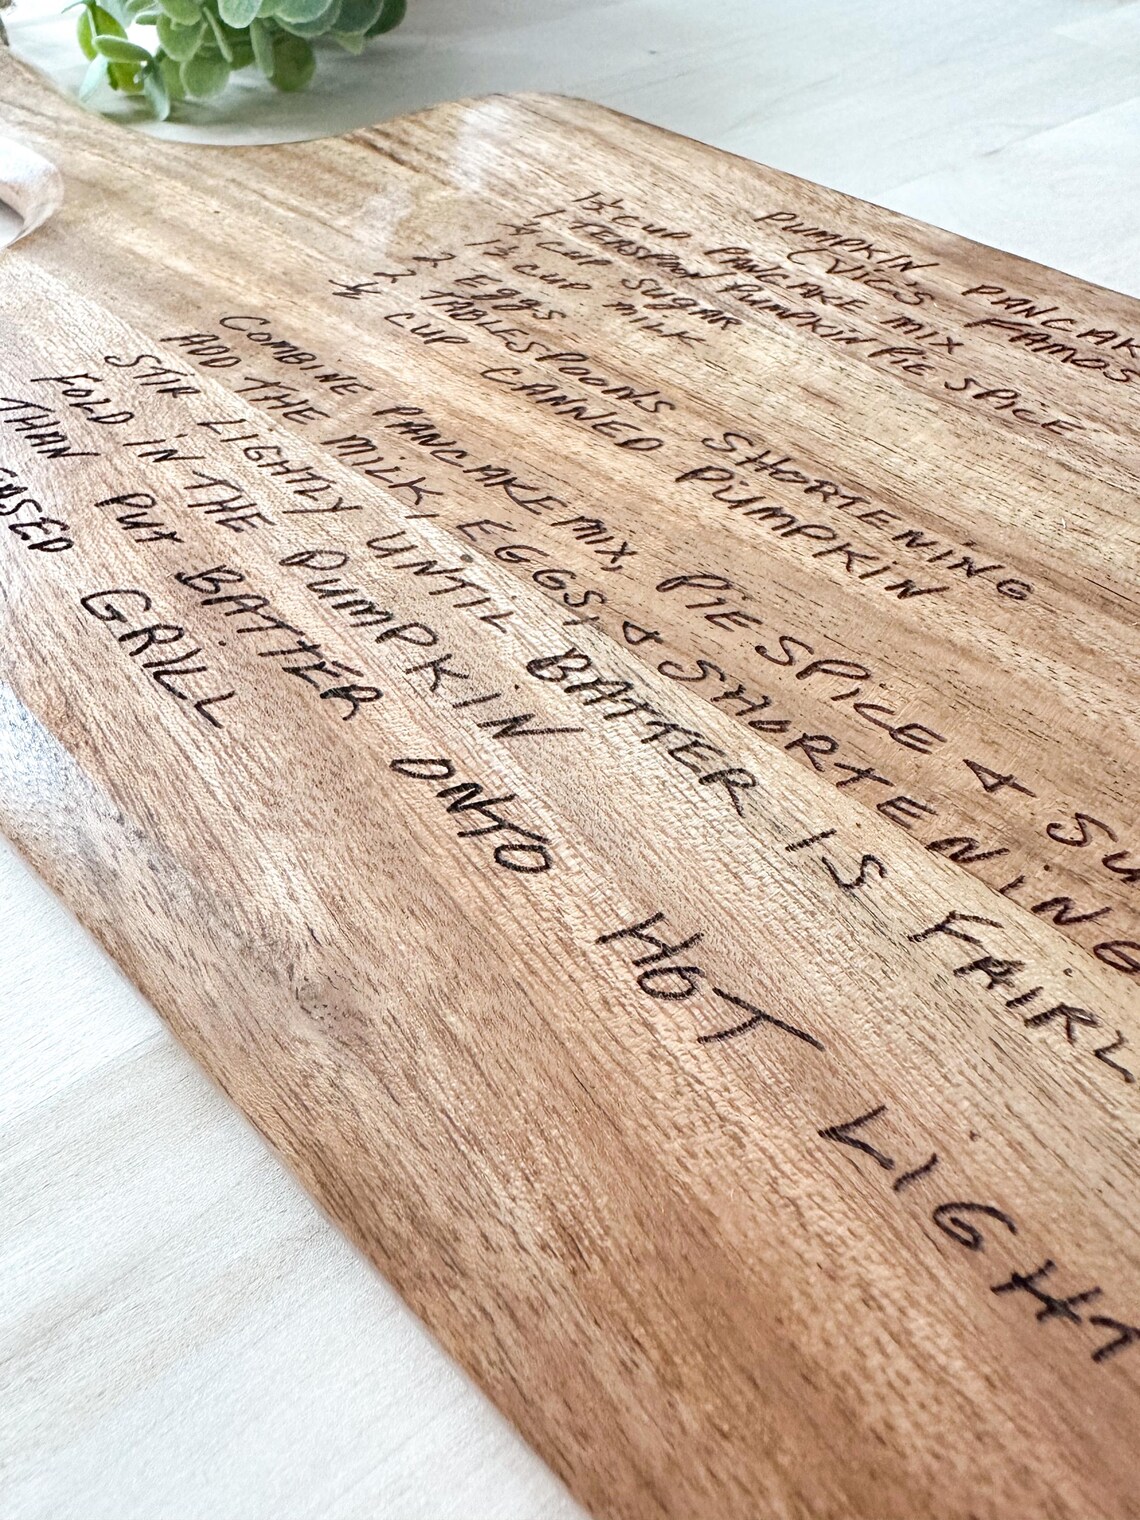 PUMPKIN PANCAK
(VIC'S FAMOS
1½ CUP PANCAKE MIX
1 TEASPOON PUMPKIN PIE SPICE
¼ CUP SUGAR
1½ CUP MILK
2 EGGS
2 TABLESPOONS SHORTENING
½ CUP CANNED PUMPKIN
COMBINE PANCAKE MIX, PIE SPICE & SU
ADD THE MILK, EGGS, & SHORTENING
STIR LIGHTLY UNTIL BATTER IS FAIRL
FOLD IN THE PUMPKIN
THAN PUT BATTER ONTO HOT LIGHT
EASED GRILL